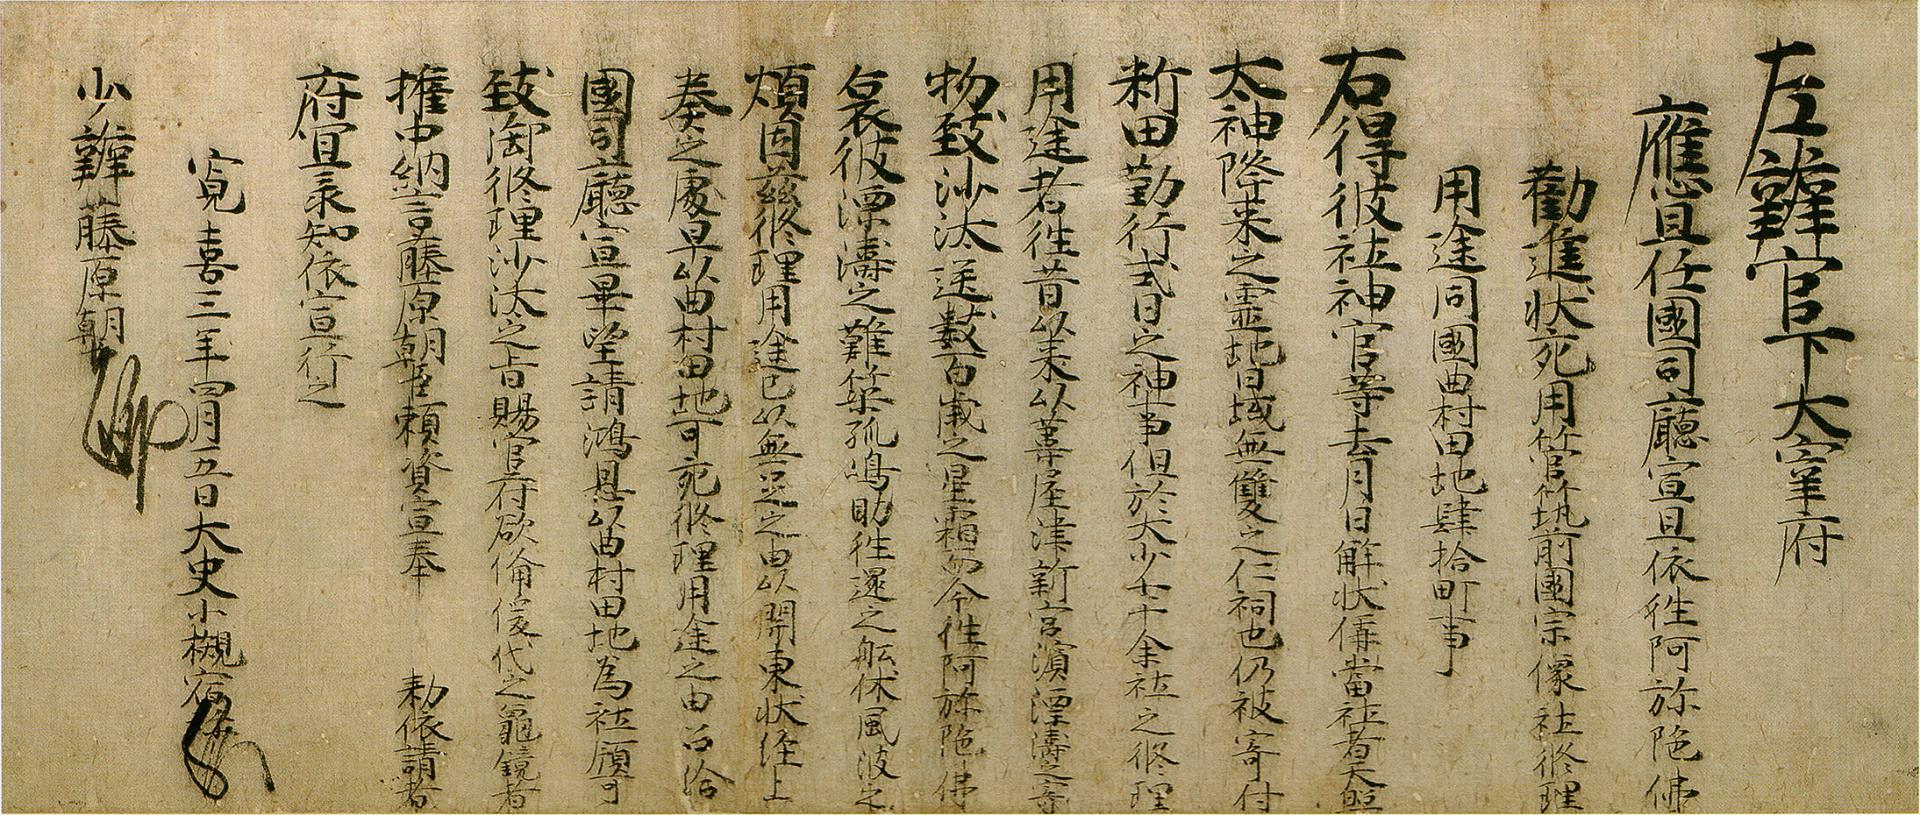 左辨官下大宰府
應且任國司廳宣且依往阿弥陁佛
勸進状死用管筑前國宗像社修理
用途同國曲村田地肆拾町事
右得彼社神官等去月日解状偁當社者天照
太神降来之霊地日域無雙之仁祠也仍被寄付
新田勤行式日之神事但於大少七十余社之修理
用途者往昔以来以葦屋津新宮濱漂濤之寄
物致沙汰送數百歳之星霜而今往阿弥陁佛
哀彼漂濤之難築孤嶋助往還之舩休風波之
煩因茲修理用途已以無足之由以關東状経上
奏之處早以曲村田地可宛修理用途之由
國司廳宣畢望請鴻恩以曲村田地為社領可
致御修理沙汰之旨賜官符欲備後代之龜鏡者
權中納言藤原朝臣頼資宣奉 勅依請者
府宜承知依宣行之
寛喜三年四月五日大史小槻宿祢
少辨藤原朝臣